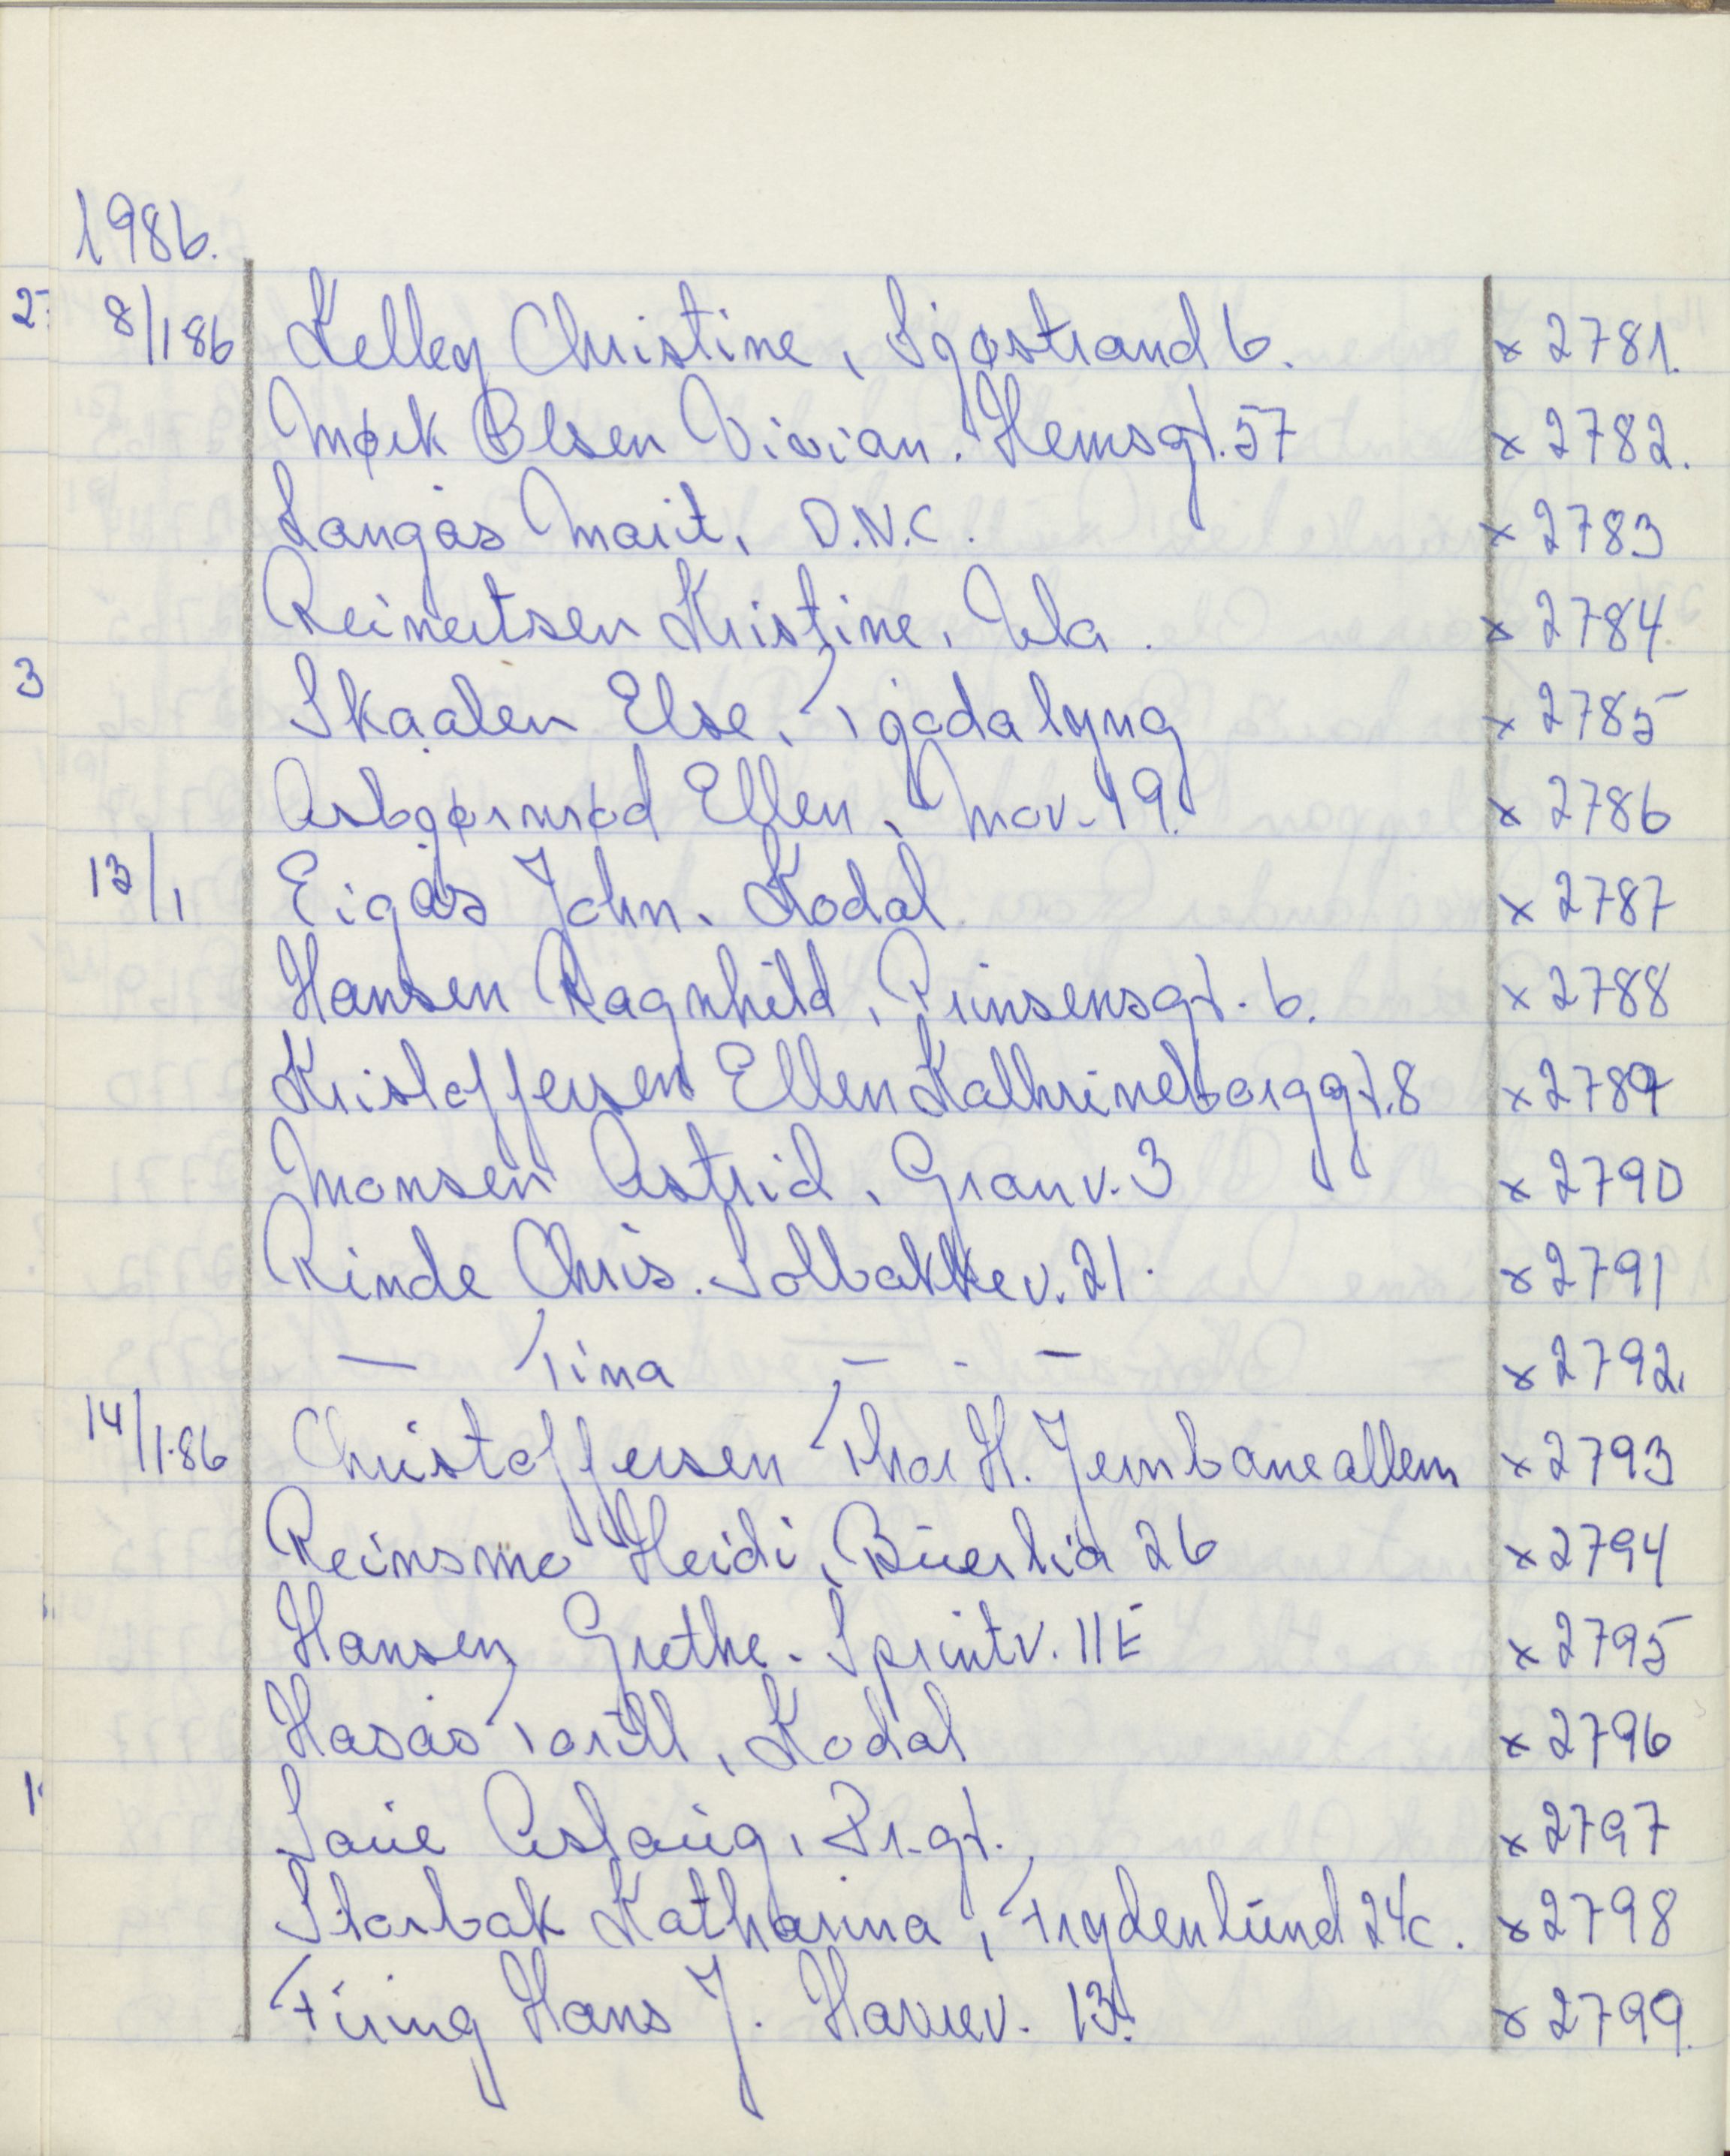 1986.
2- 8/1 86 Kelley Christine, Sjøstrand 6. x 2781.
Mørk Olsen Vivian. Hemsgt. 57 x 2782.
Langås Marit, D.N.C. x 2783
Reinertsen Kristine, Ula. x 2784.
3 Skaalen Else, Tjodalyng x 2785
Asbjørnrød Ellen, Mov. 19. x 2786
13/1 Eigås John. Kodal x 2787
Hansen Ragnhild, Prinsensgt. 6. x 2788
Kristoffersen Ellen Kathrineborggt. 8 x 2789
Monsen Astrid, Granv. 3 x 2790
Rinde Chris. Solbakkev. 21. x 2791
— Tina — . — x 2792.
14/1.86 Christoffersen Thor H. Jernbanealleen x 2793
Reinsmo Heidi, Buerlia 26 x 2794
Hansen Grethe. Sprintv. 11E x 2795
Hasås Torill, Kodal x 2796
1. Saue Aslaug, Pr.gt. x 2797
Storbak Katharina, Frydenlund 24c. x 2798
Furing Hans J. Havrev. 13. x 2799.